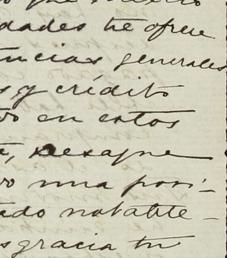 dades te ofrece
encias generales
s y crédito
o en estos
, desaque
o una posi-
tado notable-
sgracia tu